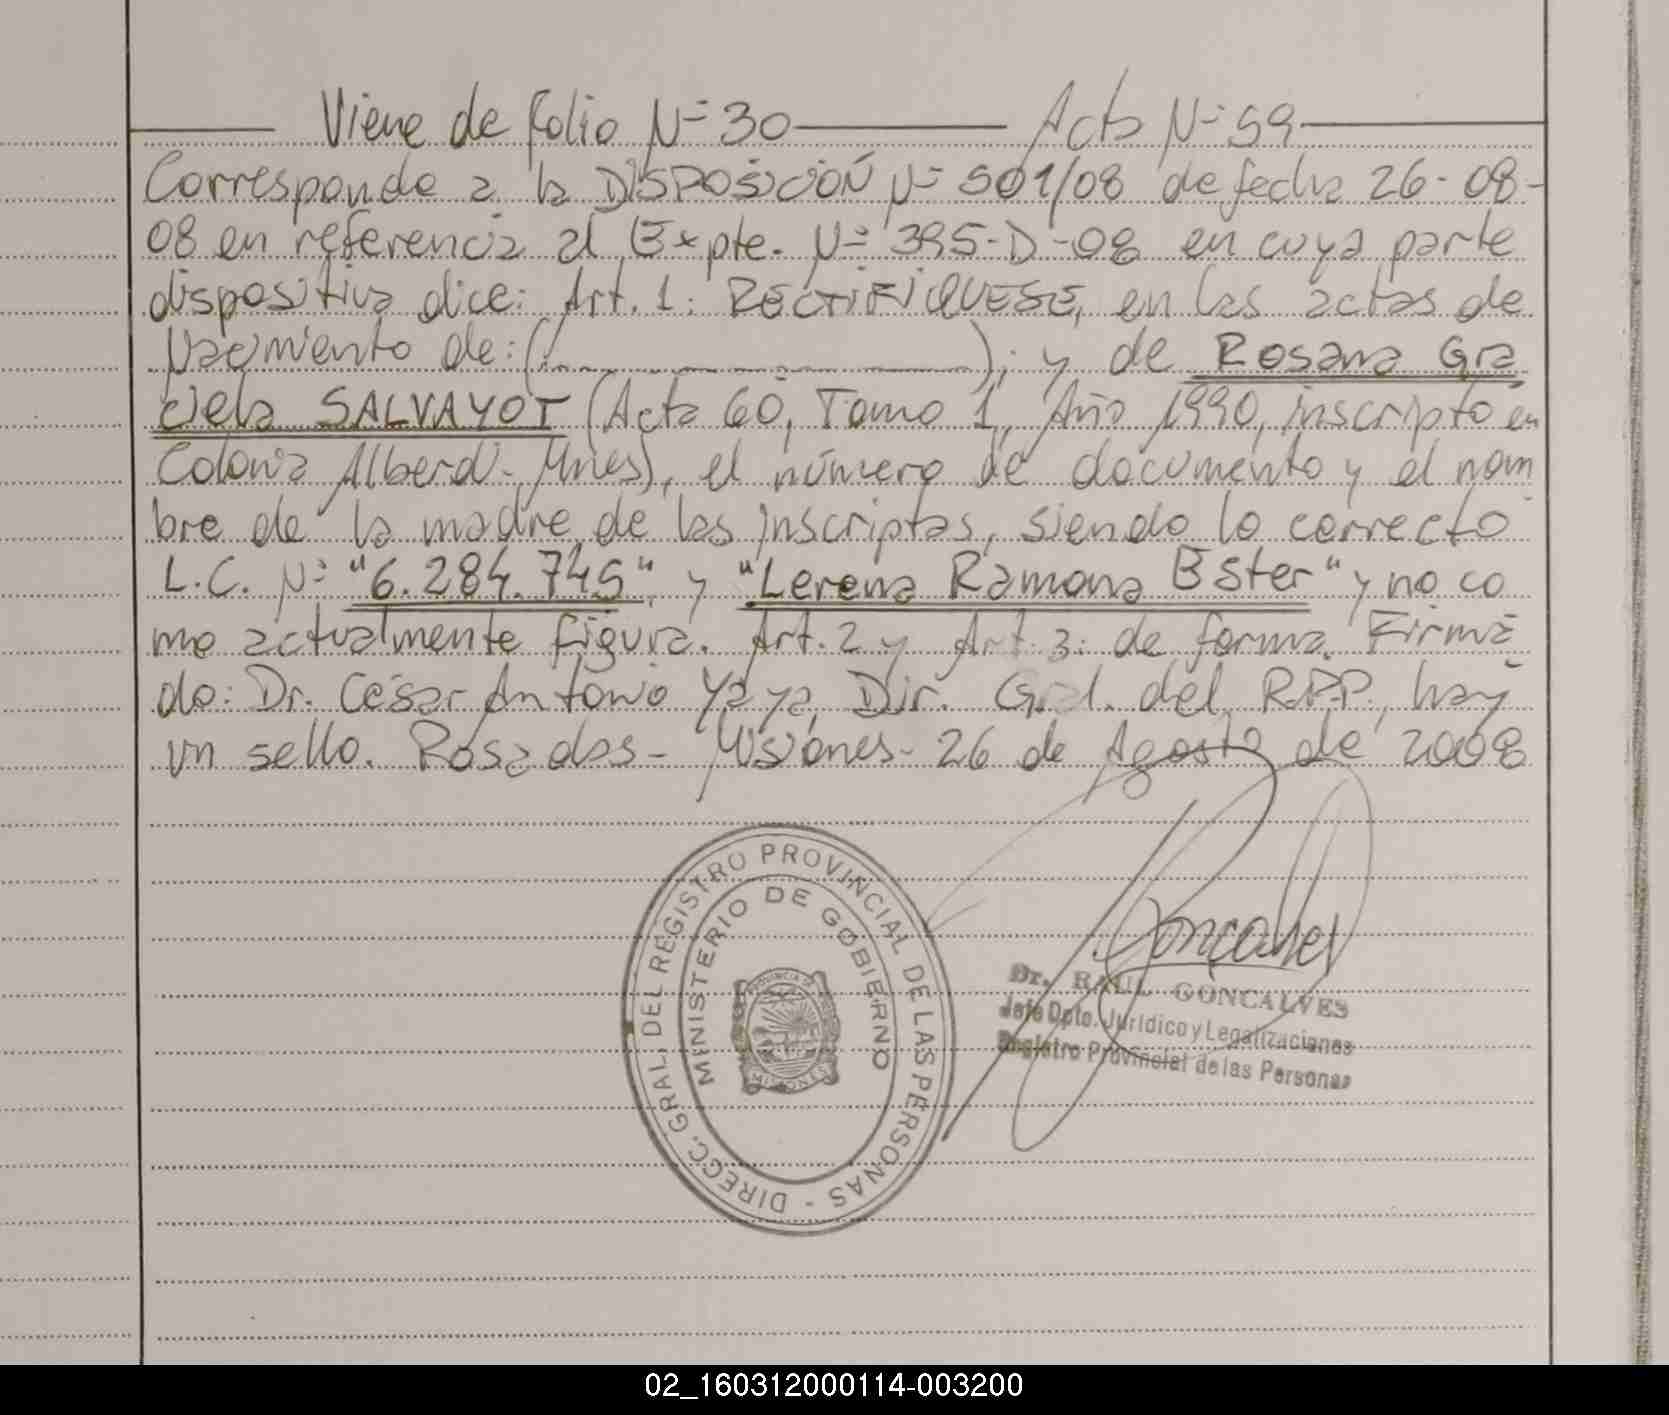 Viene de folio Nº 30 Acta Nº 59
Corresponde a la DISPOSICIÓN Nº 501/08 de fecha 26-08-
08 en referencia al Expte. Nº 395-D-08 en cuya parte
dispositiva dice: Art. 1: RECTIFIQUESE, en las actas de
Nacimiento de: (                    ); y de Rosana Gra
ciela SALVAYOT (Acta 60, Tomo 1, Año 1990, inscripto en
Colonia Alberdi- Mnes), el número de documento y el nom
bre de la madre de las inscriptas, siendo lo correcto
L.C. Nº "6.284.745" y "Lerena Ramona Ester" y no co
mo actualmente figura. Art. 2 y Art. 3: de forma. Firma
do: Dr. César Antonio Yaya, Dir. Gral. del R.P.P., hay
un sello. Posadas- Misiones- 26 de Agosto de 2008
DIRECC. GRAL. DEL REGISTRO PROVINCIAL DE LAS PERSONAS -
MINISTERIO DE GOBIERNO
PROVINCIA DE
MISIONES
Goncalves
Dr. RAUL GONCALVES
Jefe Dpto. Jurídico y Legalizaciones
Registro Provincial de las Personas
02_160312000114-003200